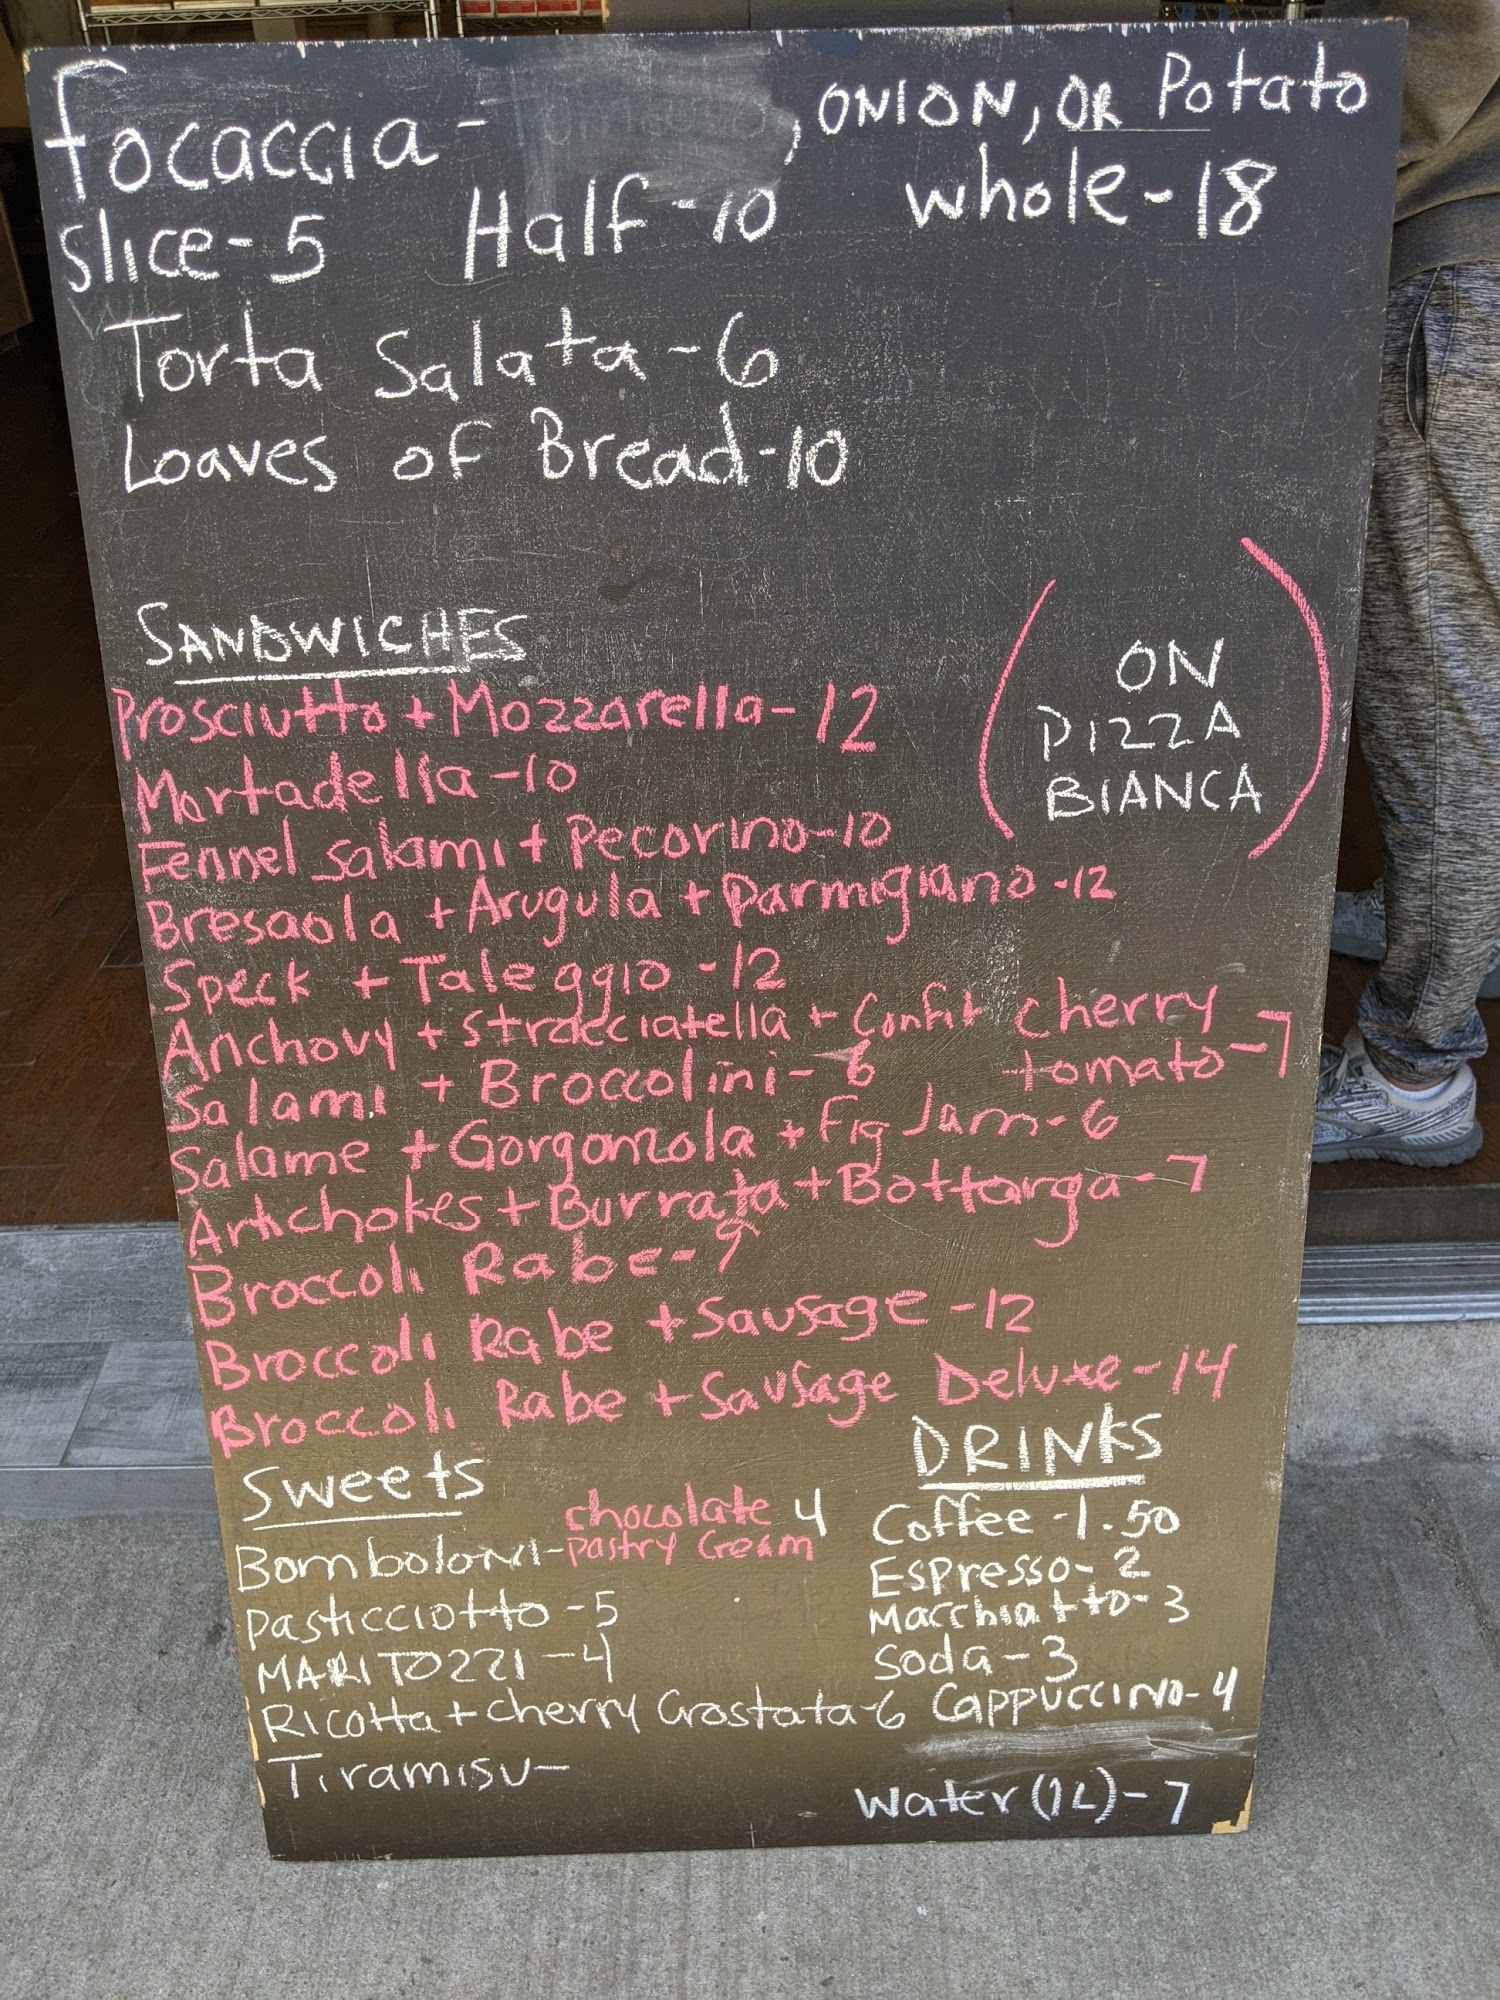 focaccia - , ONION, OR Potato
slice-5 Half-10 whole-18
Torta Salata-6
Loaves of Bread-10
SANDWICHES
(ON
PIZZA
BIANCA)
Prosciutto + Mozzarella-12
Mortadella-10
Fennel salami + Pecorino-10
Bresaola + Arugula + Parmigiano-12
Speck + Taleggio-12
Anchovy + stracciatella + Confit cherry
tomato-7
Salami + Broccolini-6
Salame + Gorgonzola + Fig Jam-6
Artichokes + Burrata + Bottarga-7
Broccoli Rabe-9
Broccoli Rabe + Sausage-12
Broccoli Rabe + Sausage Deluxe-14
Sweets
Bomboloni-chocolate 4
pastry cream
Pasticciotto-5
MARITOZZI-4
Ricotta + cherry Crostata-6
Tiramisu-
DRINKS
Coffee-1.50
Espresso-2
Macchiatto-3
Soda-3
Cappuccino-4
Water (1L)-7